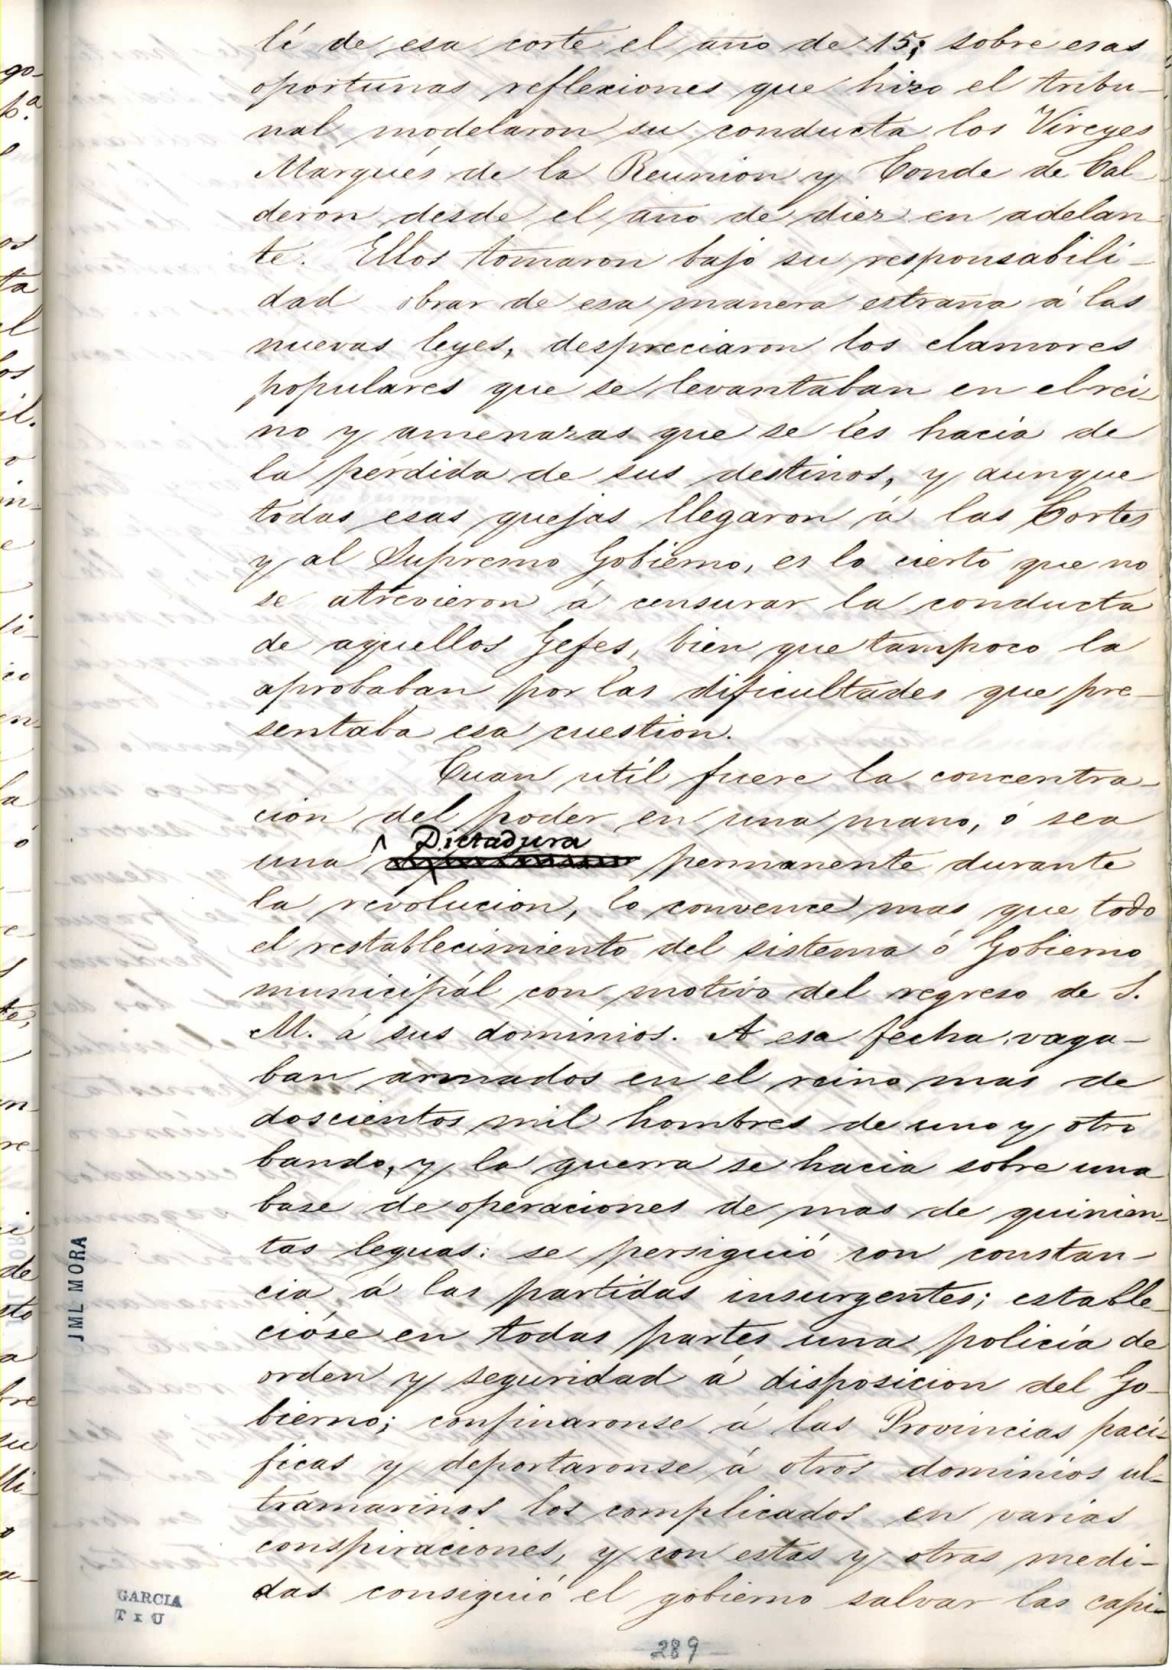 lé de esa corte el año de 15; sobre esas
oportunas reflexiones que hizo el tribu-
nal modelaron su conducta los Vireyes
Marqués de la Reunion y Conde de Cal
deron desde el año de diez en adelan
te. Ellos tomaron bajo su responsabili-
dad obrar de esa manera estraña á las
nuevas leyes, despreciaron los clamores
populares que se levantaban en el rei-
no y amenazas que se les hacia de
la pérdida de sus destinos, y aunque
todas esas quejas llegaron á las Cortes
y al Supremo Gobierno, es lo cierto que no
se atrevieron á censurar la conducta
de aquellos Gefes, bien que tampoco la
aprobaban por las dificultades que pre-
sentaba esa cuestion.
Cuan util fuere la concentra-
ción del poder en una mano, ó sea
una Dictadura permanente durante
la revolucion, lo convence mas que todo
el restablecimiento del sistema ó Gobierno
municipal con motivo del regreso de S.
M. á sus dominios. A esa fecha vaga-
ban armados en el reino mas de
doscientos mil hombres de uno y otro
bando, y la guerra se hacia sobre una
base de operaciones de mas de quinien-
tas leguas: se persiguió con constan-
cia á las partidas insurgentes; estable-
cióse en todas partes una policía de
orden y seguridad á disposicion del Go-
bierno; confinaronse á las Provincias pací-
ficas y deportaronse á otros dominios ul-
tramarinos los complicados en varias
conspiraciones, y con estas y otras medi-
das consiguió el gobierno salvar las capi-
JML MORA
GARCIA
T x U
289